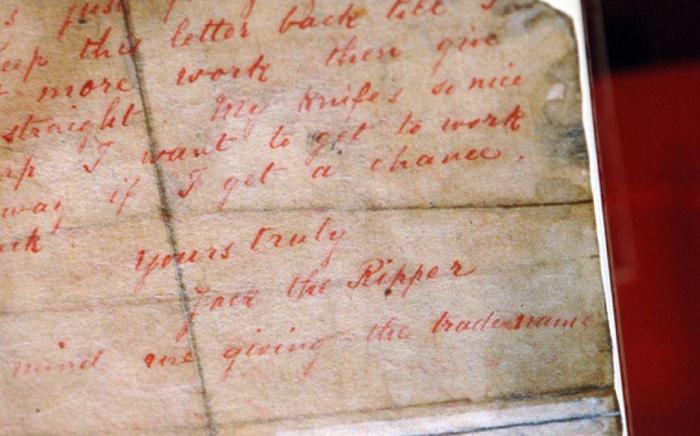 s just
keep this letter back till I
t more work then give
straight. My knife's so nice
arp I want to get to work
away if I get a chance.
uck.
yours truly
Jack the Ripper
mind me giving the trade name